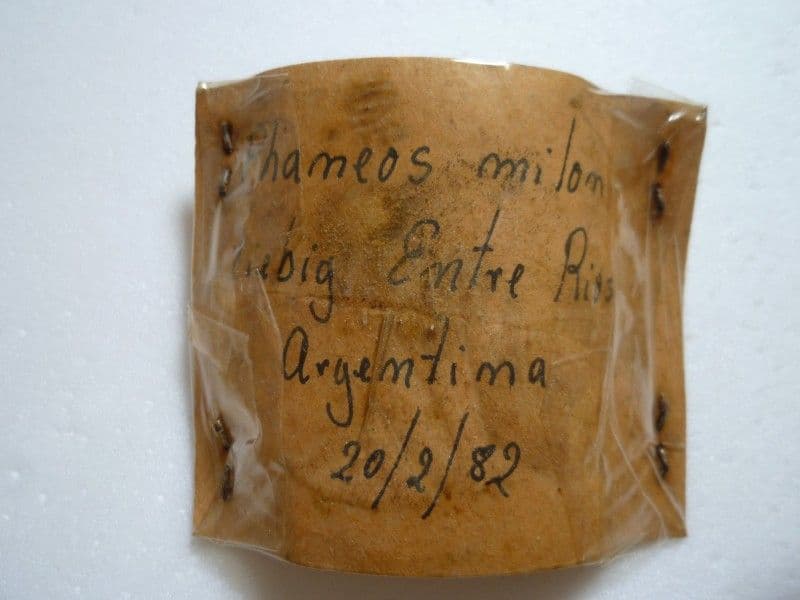 Phaneos milon
Liebig Entre Rios
Argentina
20/2/82